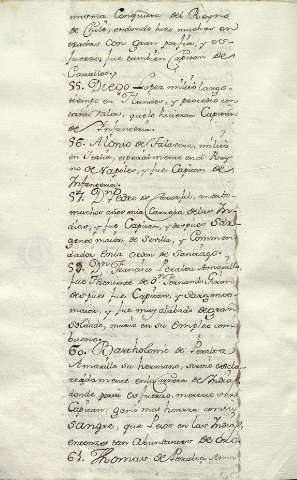 misma Conquista del Reyno
de Chile, adonde hizo muchas en-
tradas con gran porfia, y es-
fuerzo: fue tambien Capitan de
Cavallos.
55. Diego Lopez milito largo
tiempo en Flandes, y procedio con
tanto valor, que le hicieron Capitan
de Infanteria.
56. Alonso de Talavera, milito
en Italia, especialmente en el Rey-
no de Napoles, y fue Capitan de
Infanteria.
57. Dn Pedro de
muchos años en la Carrera de las In-
dias, y fue Capitan, y despues Sar-
gento maior de Sevilla, y Commen-
dador en la orden de Santiago.
59. Dn Francisco Peralta
fue Theniente de Dn Fernando Giron
despues fue Capitan, y Sargento
maior, y fue muy alabado de gran
soldado, murio en su empleo con
buenos.
60. Bartholome de Peralta
su hermano, sirvio
en la Carrera de Indias,
donde por su esfuerzo, merecio ser
Capitan: gano mas honrra con su
sangre, que Pesos en las Indias,
entonces tan abundantes de oro.
61. Thomas de Peralta